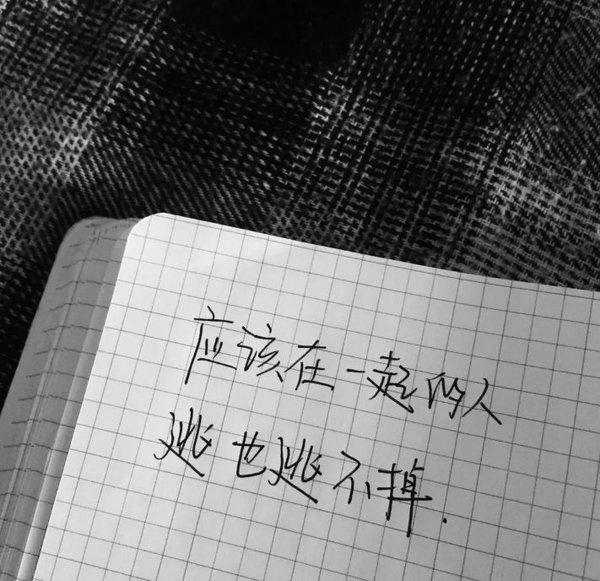 应该在一起的人
逃也逃不掉.